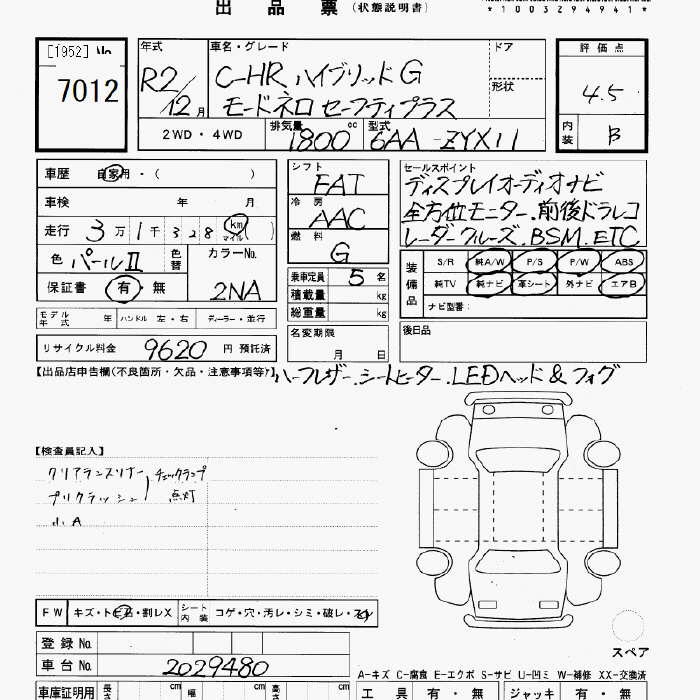 出品票(状態説明書)
*1003294941*
[1952] No.
7012
年式
R2/12月
車名・グレード
C-HR ハイブリッド G
モードネロ セーフティプラス
ドア
形状
評価点
4.5
内装
B
2WD・4WD
排気量 1800 cc
型式 6AA-ZYX11
車歴 自家用・( )
車検 年 月
走行 3万1千328 km マイル )
色 パールⅡ 色替
カラーNo. 2NA
保証書 有・無
シフト FAT
冷房 AAC
燃料 G
セールスポイント
ディスプレイオーディオナビ
全方位モニター.前後ドラレコ
レーダークルーズ.BSM.ETC
乗車定員 5 名
積載量 kg
総重量 kg
装備品 S/R 純A/W P/S P/W ABS
純TV 純ナビ 革シート 外ナビ エアB
ナビ型番:
モデル年式 年 ハンドル 左・右 ディーラー・並行
名変期限 月 日
後日品
リサイクル料金 9620 円 預託済
【出品店申告欄(不良箇所・欠品・注意事項等)】ハーフレザー.シートヒーター.LEDヘッド&フォグ
【検査員記入】
クリアランスソナー チェックランプ
プリクラッシュ 点灯
小A
FW キズ・トビ石・割レX シート内装 コゲ・穴・汚レ・シミ・破レ・スレ
登録No.
車台No. 2029480
スペア
A-キズ C-腐食 E-エクボ S-サビ U-凹ミ W-補修 XX-交換済
車庫証明用 長さ cm 幅 cm 高さ cm
工具 有・無 ジャッキ 有・無